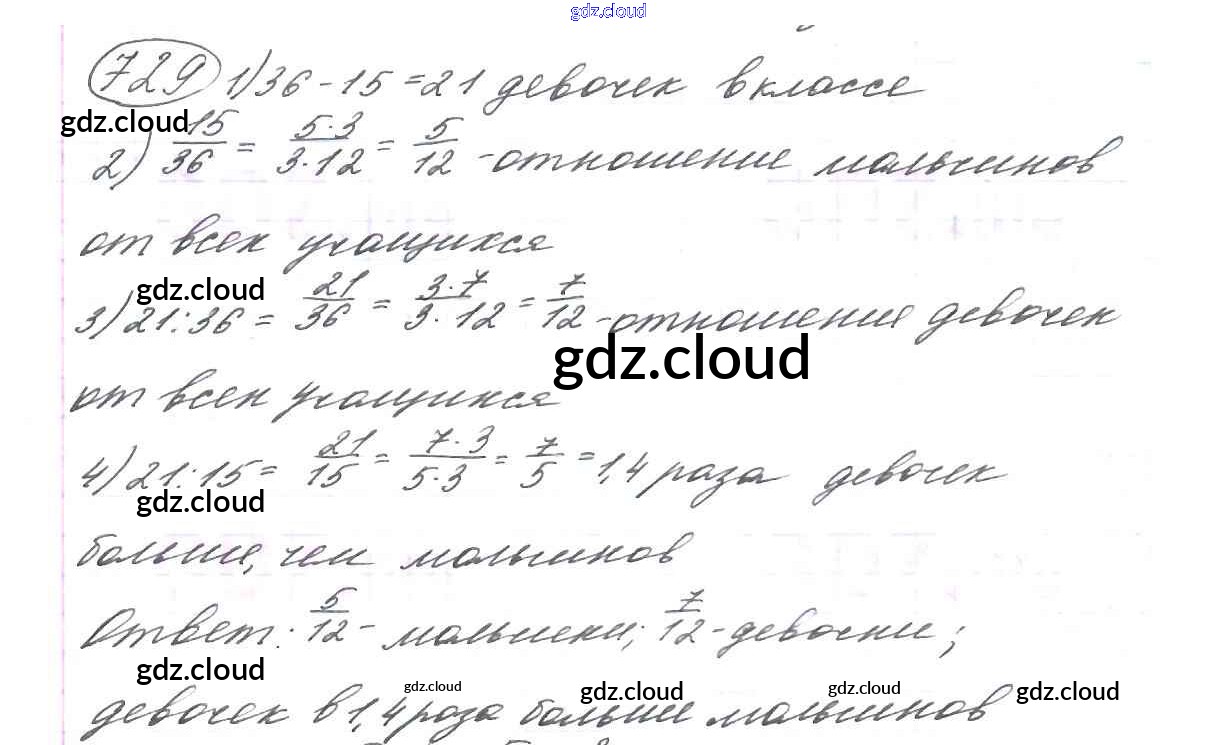 gdz.cloud
729 1) 36 - 15 = 21 девочек в классе
gdz.cloud
2) 15/36 = 5·3/3·12 = 5/12 - отношение мальчиков
от всех учащихся
gdz.cloud
3) 21:36 = 21/36 = 3·7/3·12 = 7/12 - отношения девочек
gdz.cloud
от всех учащихся
4) 21:15 = 21/15 = 7·3/5·3 = 7/5 = 1,4 раза девочек
gdz.cloud
больше, чем мальчиков
Ответ: 5/12 - мальчики; 7/12 - девочки;
gdz.cloud
gdz.cloud
gdz.cloud
gdz.cloud
gdz.cloud
девочек в 1,4 раза больше мальчиков